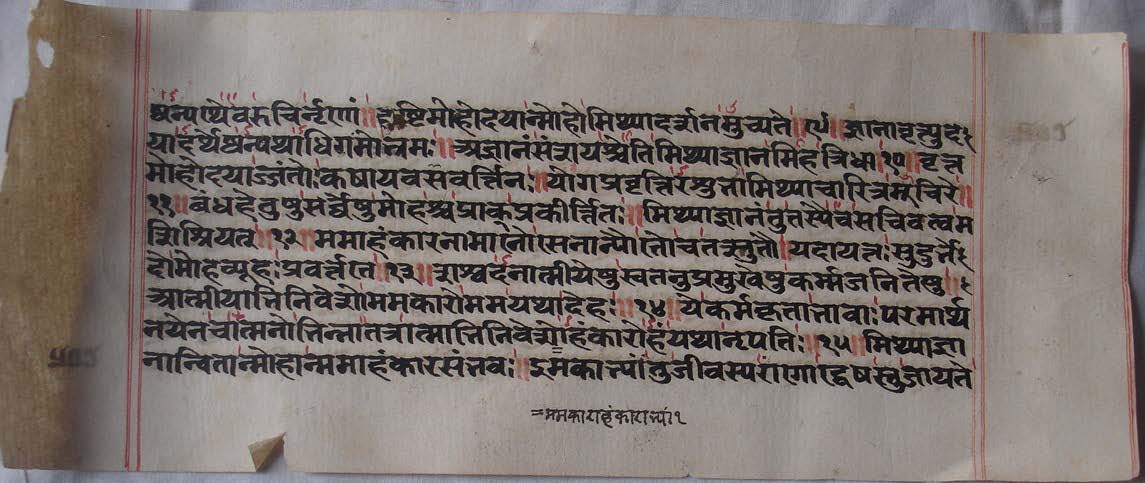 ष्वन्यथैव रुचिर्नृणां ॥ दृष्टिमोहोदयान्मोहो मिथ्यादर्शनमुच्यते ॥ ९ ॥ ज्ञानावृत्युद
यादर्थेष्वन्यथाधिगमो भ्रमः ॥ अज्ञानं संशयश्चेति मिथ्याज्ञानमिह त्रिधा ॥ १० ॥ वृत्त
मोहोदयाज्जंतोः कषायवसवर्त्तिनः ॥ योगप्रवृत्तिरशुभा मिथ्याचारित्रमूचिरे ॥
११ ॥ बंधहेतुषु सर्वेषु मोहश्च प्राक् प्रकीर्त्तितः ॥ मिथ्याज्ञानं तु तस्यैव सचिवत्वम
शिश्रियत् ॥ १२ ॥ ममाहंकारनामानौ सेनान्यौ तौ च तत्सुतौ ॥ यदायत्तः सुदुर्भे
दो मोहव्यूहः प्रवर्त्तते ॥ १३ ॥ शश्वदनात्मीयेषु स्वतनुप्रमुखेषु कर्म्मजनितेषु ॥
आत्मीयाभिनिवेशो ममकारो मम यथा देहः ॥ १४ ॥ ये कर्मकृता भावाः परमार्थ
नयेन चात्मनो भिन्नाः तत्रात्माभिनिवेशोहंकारोहं यथा नृपतिः ॥ १५ ॥ मिथ्याज्ञा
नान्वितान्मोहान्ममाहंकारसंभवः ॥ इमकाभ्यां तु जीवस्य रागो द्वेषस्तु जायते
= ममकाराहंकाराभ्यां १